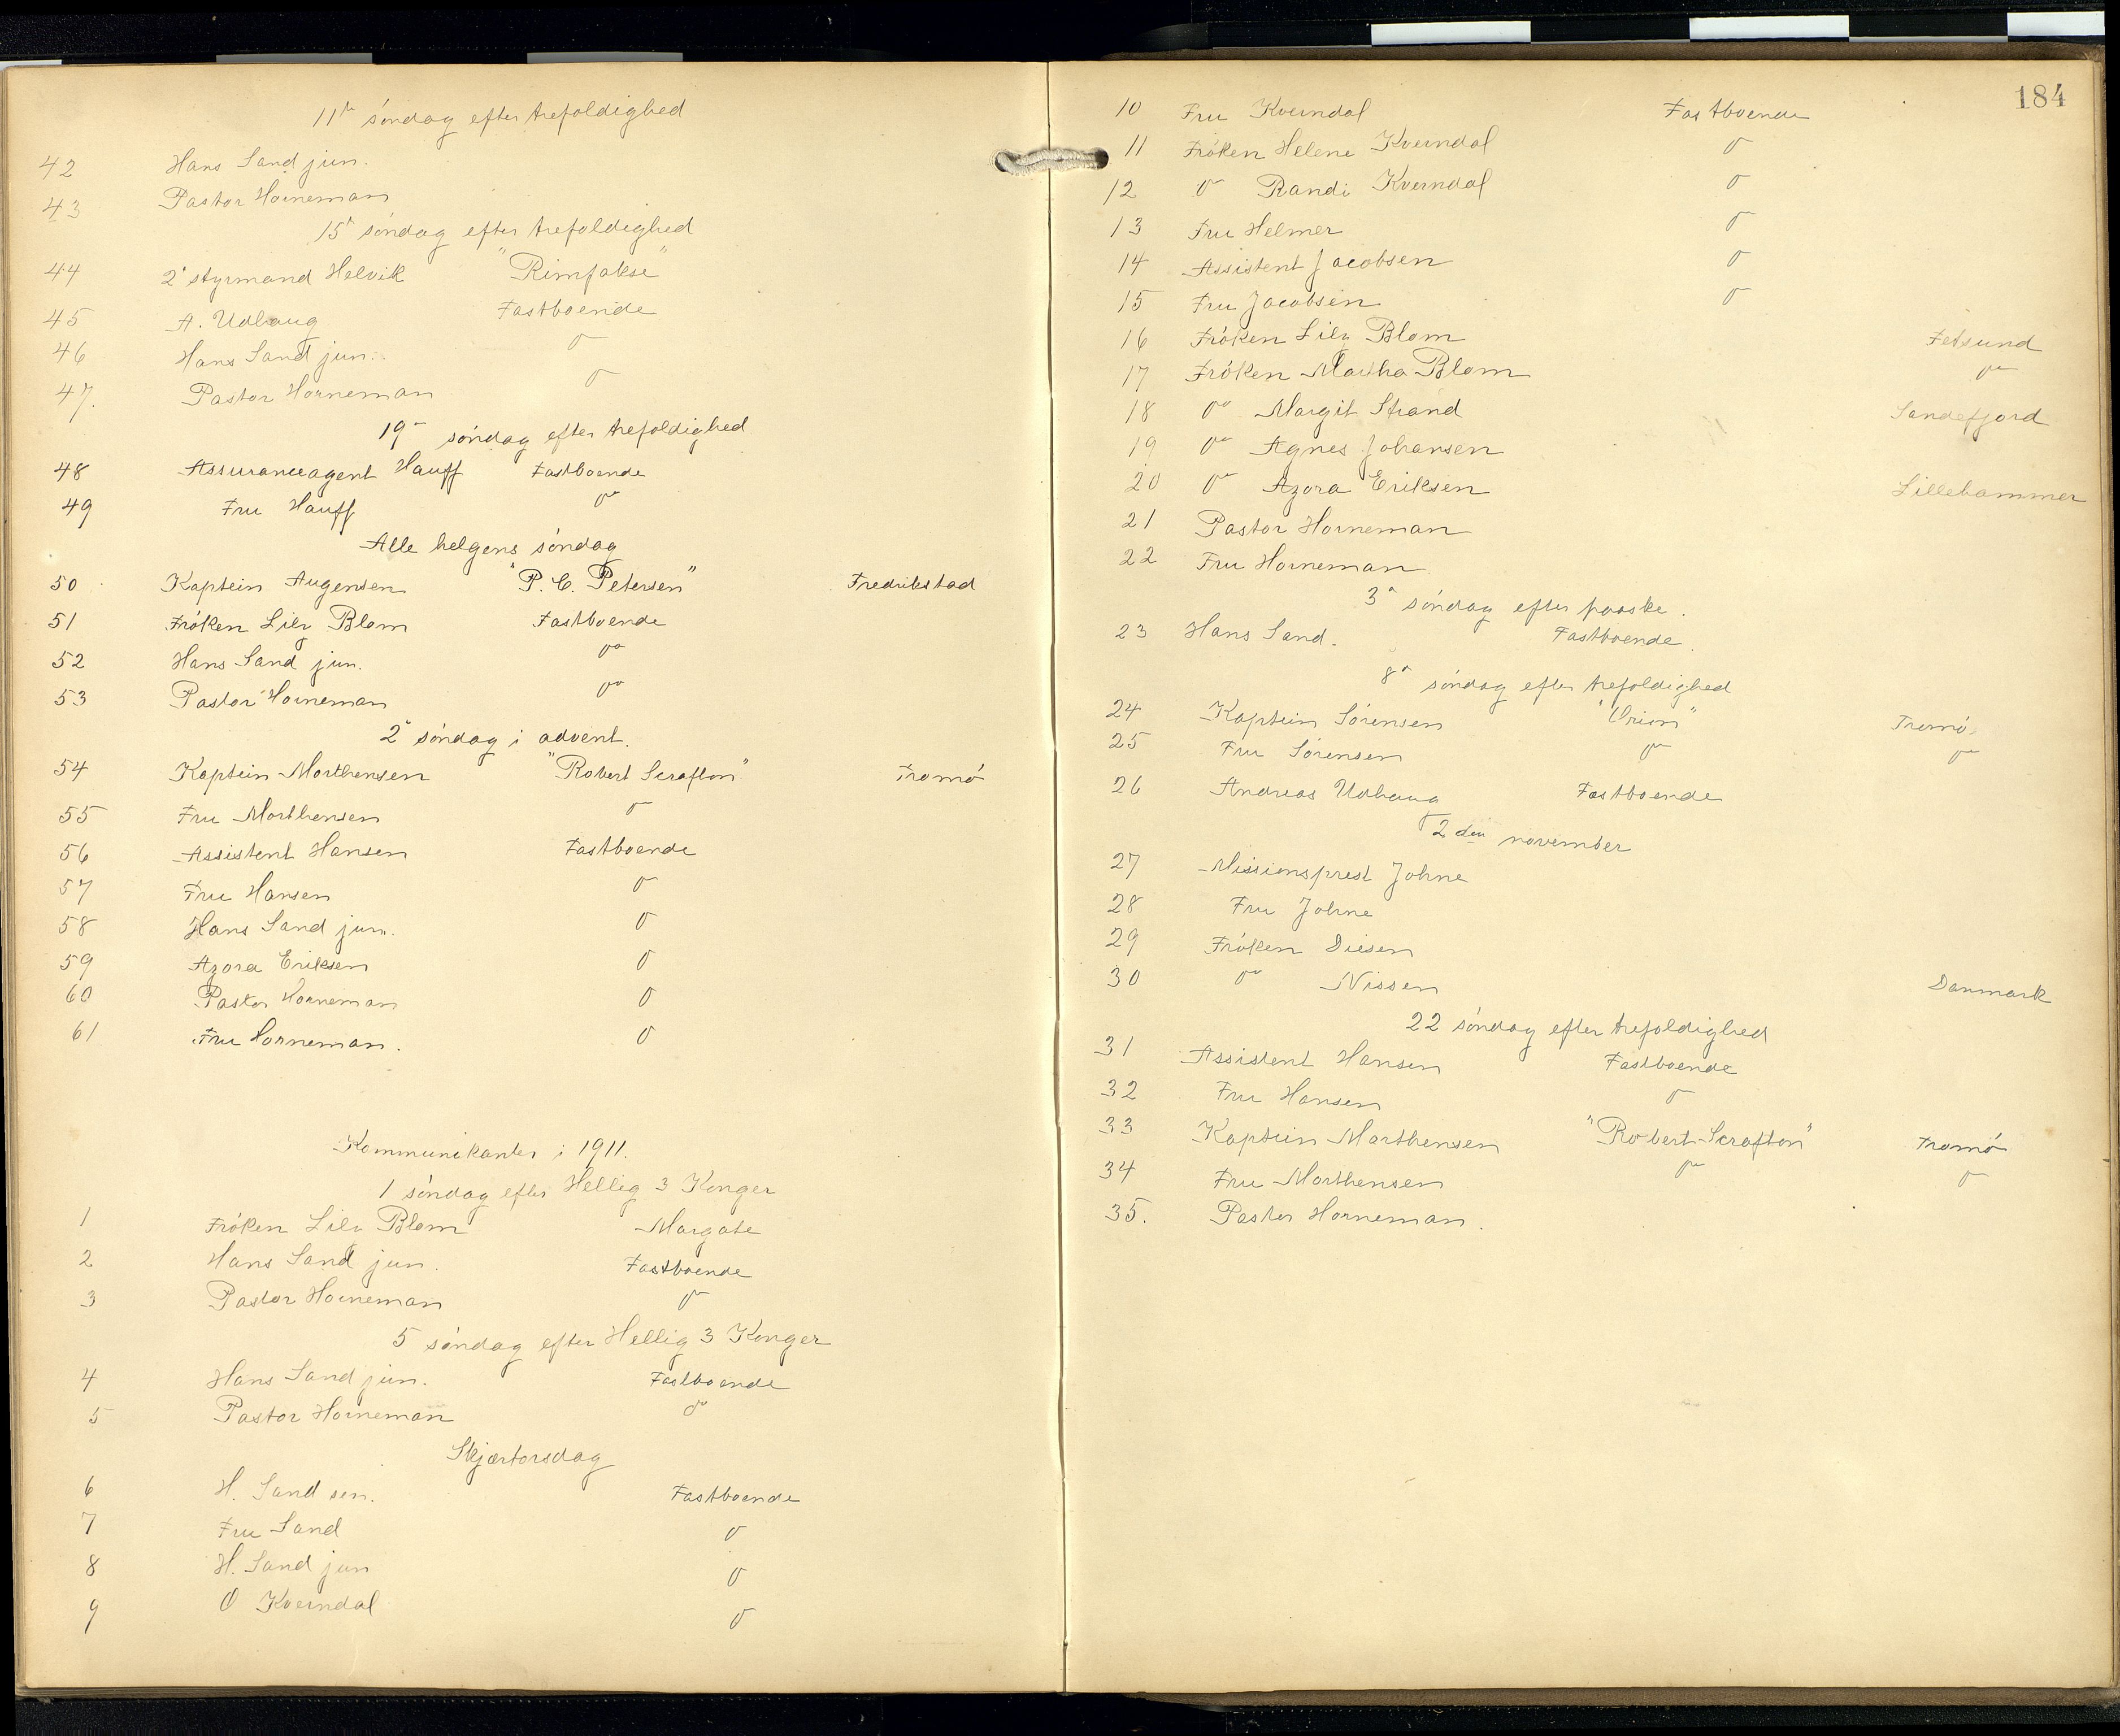 11te søndag efter trefoldighed
42 Hans Sand jun.
43 Pastor Horneman
15de søndag efter trefoldighed
44 2' styrmand Helvik "Rimfakse"
45 A. Udhaug Fastboende
46 Hans Sand jun. do
47. Pastor Horneman do
19de søndag efter trefoldighed
48 Assuranceagent Hauff Fastboende
49 Fru Hauff do
Alle helgens søndag
50 Kaptein Augensen "P. C. Petersen" Fredrikstad
51 Frøken Lily Blom Fastboende
52 Hans Sand jun. do
53 Pastor Horneman do
2' søndag i advent.
54 Kaptein Morthensen "Robert Scrafton" Tromø
55 Fru Morthensen do
56 Assistent Hansen Fastboende
57 Fru Hansen do
58 Hans Sand jun. do
59 Azora Eriksen do
60 Pastor Horneman do
61 Fru Horneman. do
Kommunikanter i 1911.
1 søndag efter Hellig 3 Konger
1 Frøken Lily Blom Margate
2 Hans Sand jun. Fastboende
3 Pastor Horneman do
5 søndag efter Hellig 3 Konger
4 Hans Sand jun. Fastboende
5 Pastor Horneman do
Skjærtorsdag
6 H. Sand sen. Fastboende
7 Fru Sand do
8 H. Sand jun do
9 O Kverndal do
184
10 Fru Kverndal Fastboende
11 Frøken Helene Kverndal do
12 do Randi Kverndal do
13 Fru Helmer do
14 Assistent Jacobsen do
15 Fru Jacobsen do
16 Frøken Lily Blom Fetsund
17 Frøken Martha Blom do
18 do Margit Strand Sandefjord
19 do Agnes Johansen
20 do Azora Eriksen Lillehammer
21 Pastor Horneman
22 Fru Horneman
3de søndag efter paaske.
23 Hans Sand. Fastboende.
8de søndag efter trefoldighed
24 Kaptein Sørensen "Orion" Tromø
25 Fru Sørensen do do
26 Andreas Udhaug Fastboende
2 den november
27 Missionsprest Johne
28 Fru Johne
29 Frøken Diesen
30 do Nissen Danmark
22 søndag efter trefoldighed
31 Assistent Hansen Fastboende
32 Fru Hansen do
33 Kaptein Morthensen "Robert Scrafton" Tromø
34 Fru Morthensen do do
35. Pastor Horneman.